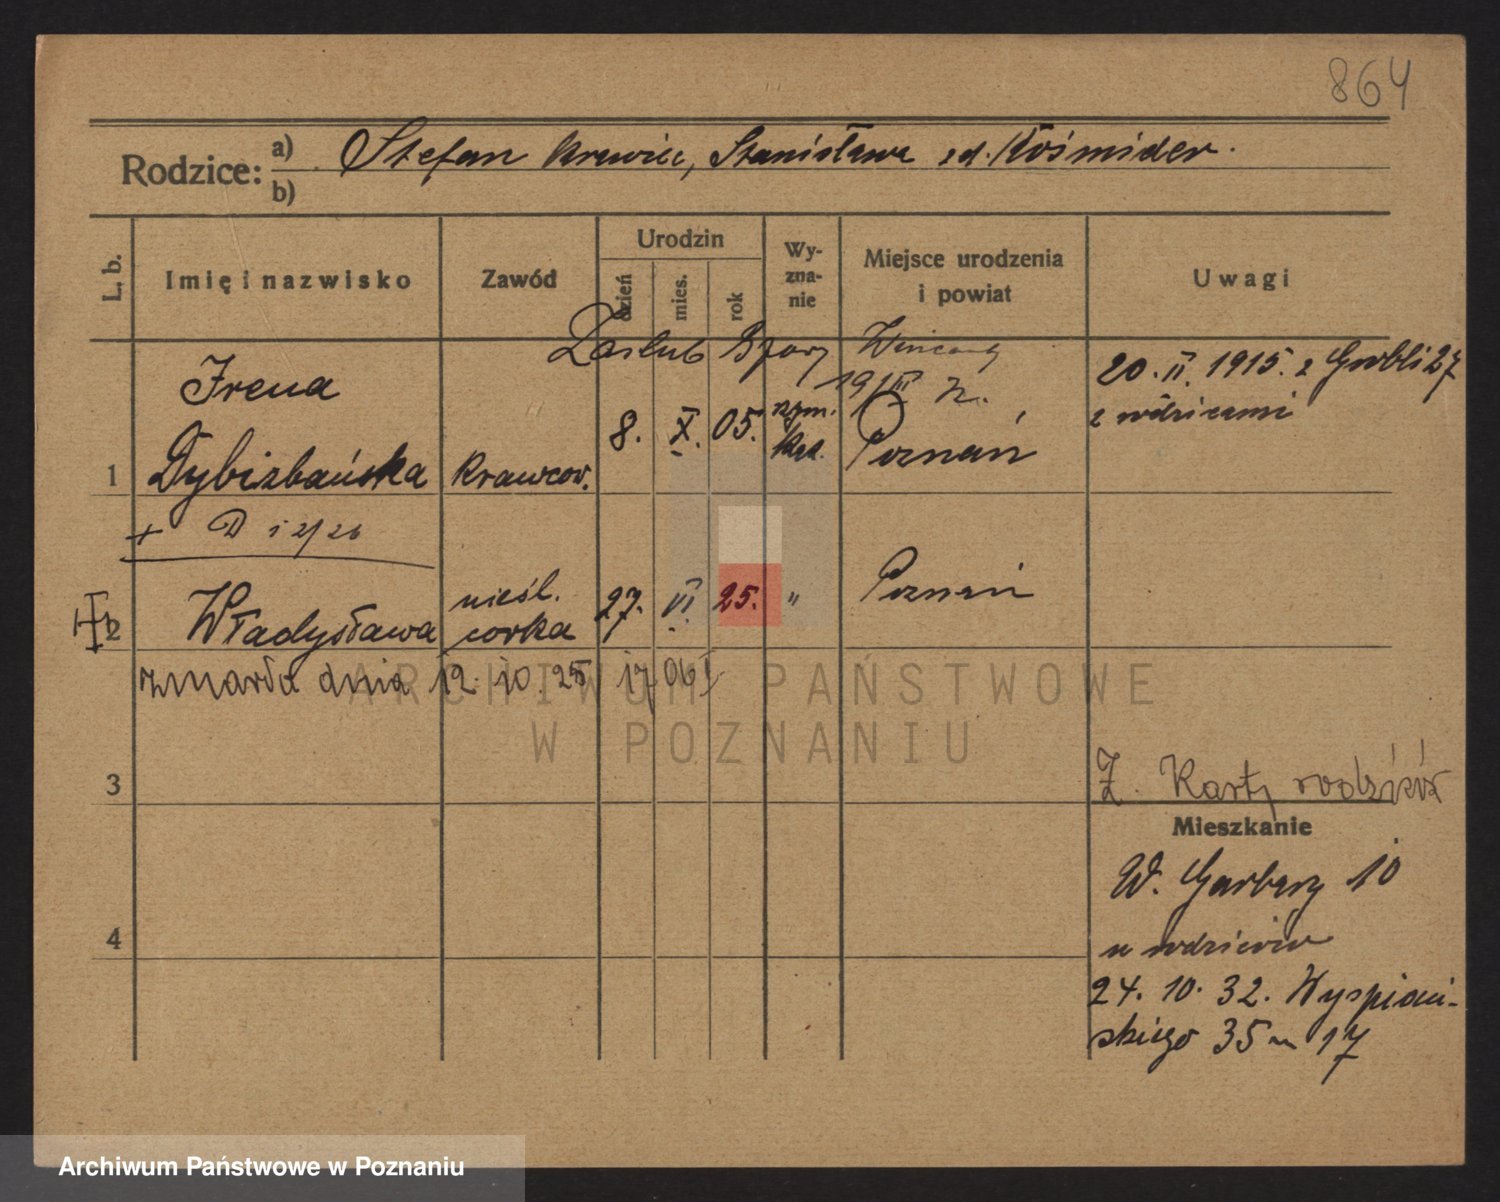 864
Rodzice: a) Stefan krawiec, Stanisława zd. Kośmider.
b)
L. b.
Imię i nazwisko
Zawód
Urodzin
dzień
mies.
rok
Wy-
zna-
nie
Miejsce urodzenia
i powiat
Uwagi
Zaślub
19/III
1
Irena
Dybizbańska
krawcow.
8. X. 05.
rzym.
kat.
Poznań
20. II. 1915. z Grobli 27
z rodzicami
+ D i 2/26
2
Władysława
nieśl.
córka
27. VI 25. "
Poznań
zmarła dnia 12. 10. 25 1706
3
Z. Karty rodziców
Mieszkanie
W. Garbary 10
u rodziców
24. 10. 32. Wyspiań-
skiego 35 m 17
4
ARCHIWUM PAŃSTWOWE
W POZNANIU
Archiwum Państwowe w Poznaniu